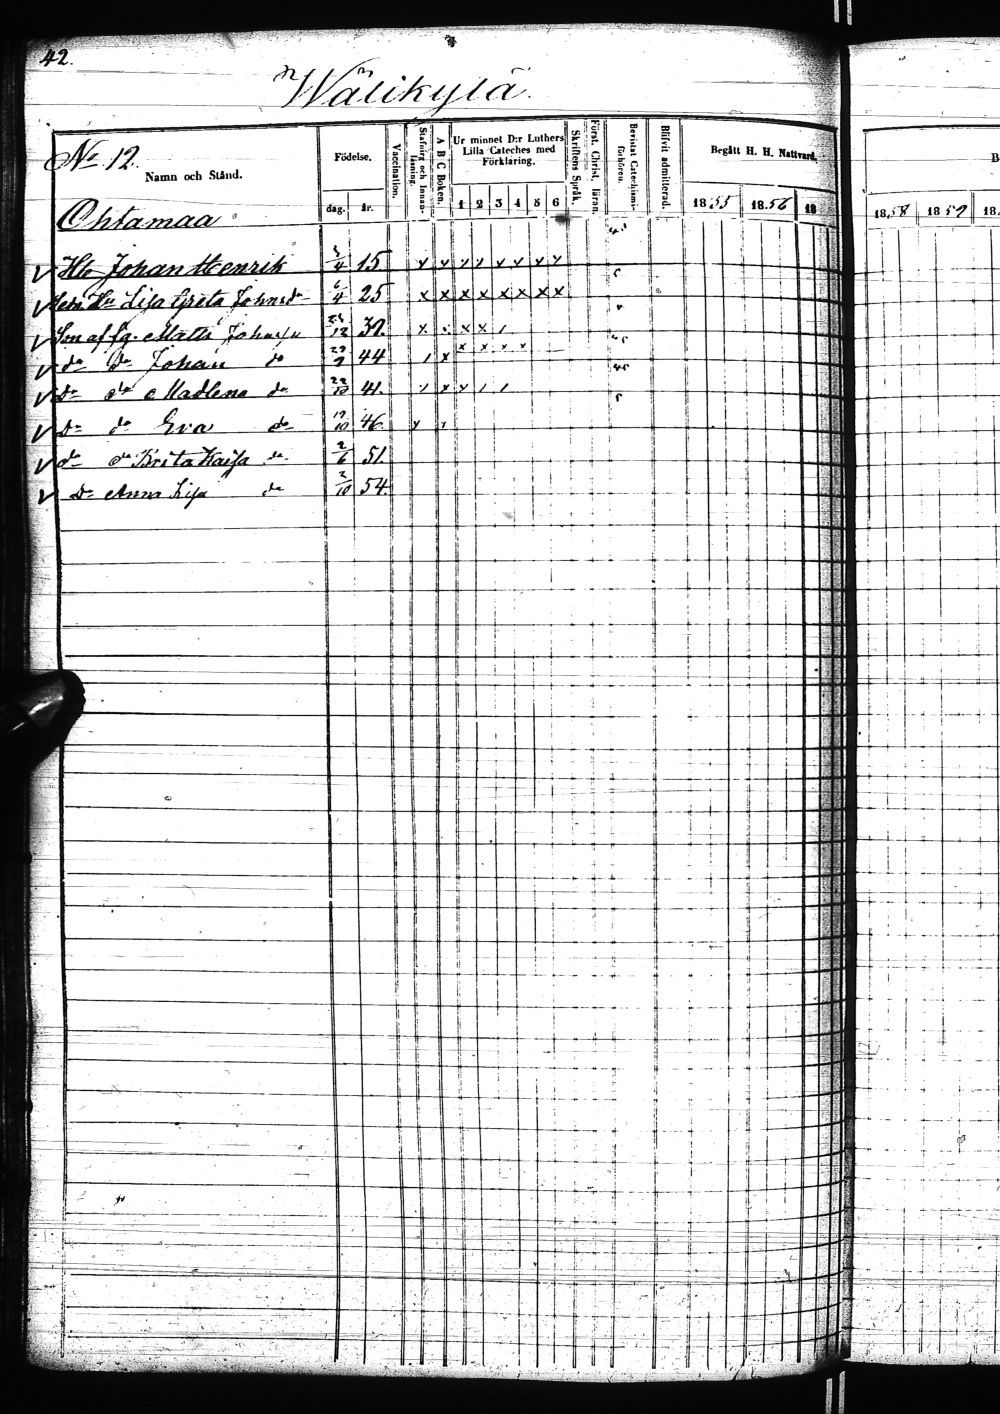 42.
Wälikylä.
No 12.
Namn och Stånd.
Födelse.
dag. år.
Vaccination.
Stafning och Innan-läsning.
A B C Boken.
Ur minnet D:r Luthers
Lilla Cateches med
Förklaring.
1 2 3 4 5 6
Skriftens Språk.
Först. Christ. läran.
Bevistat Catechismi-förhören.
Blifvit admitterad.
Begått H. H. Nattvard.
1855 1856 18
B
1858 1859 18
Ohtamaa
v Johan Henrik 5/4 15. x x x x x x x x
v Lisa Greta Johnsd 6/4 25 x x x x x x x x
v Son af fg. Matts 12
v do do Johan do 44
v Do do Madlena do 22/10 41.
v Do do Eva do 19/10 46.
v do do Brita Kaisa do 2/6 51.
v Do Anna Lisa do 2/10 54.